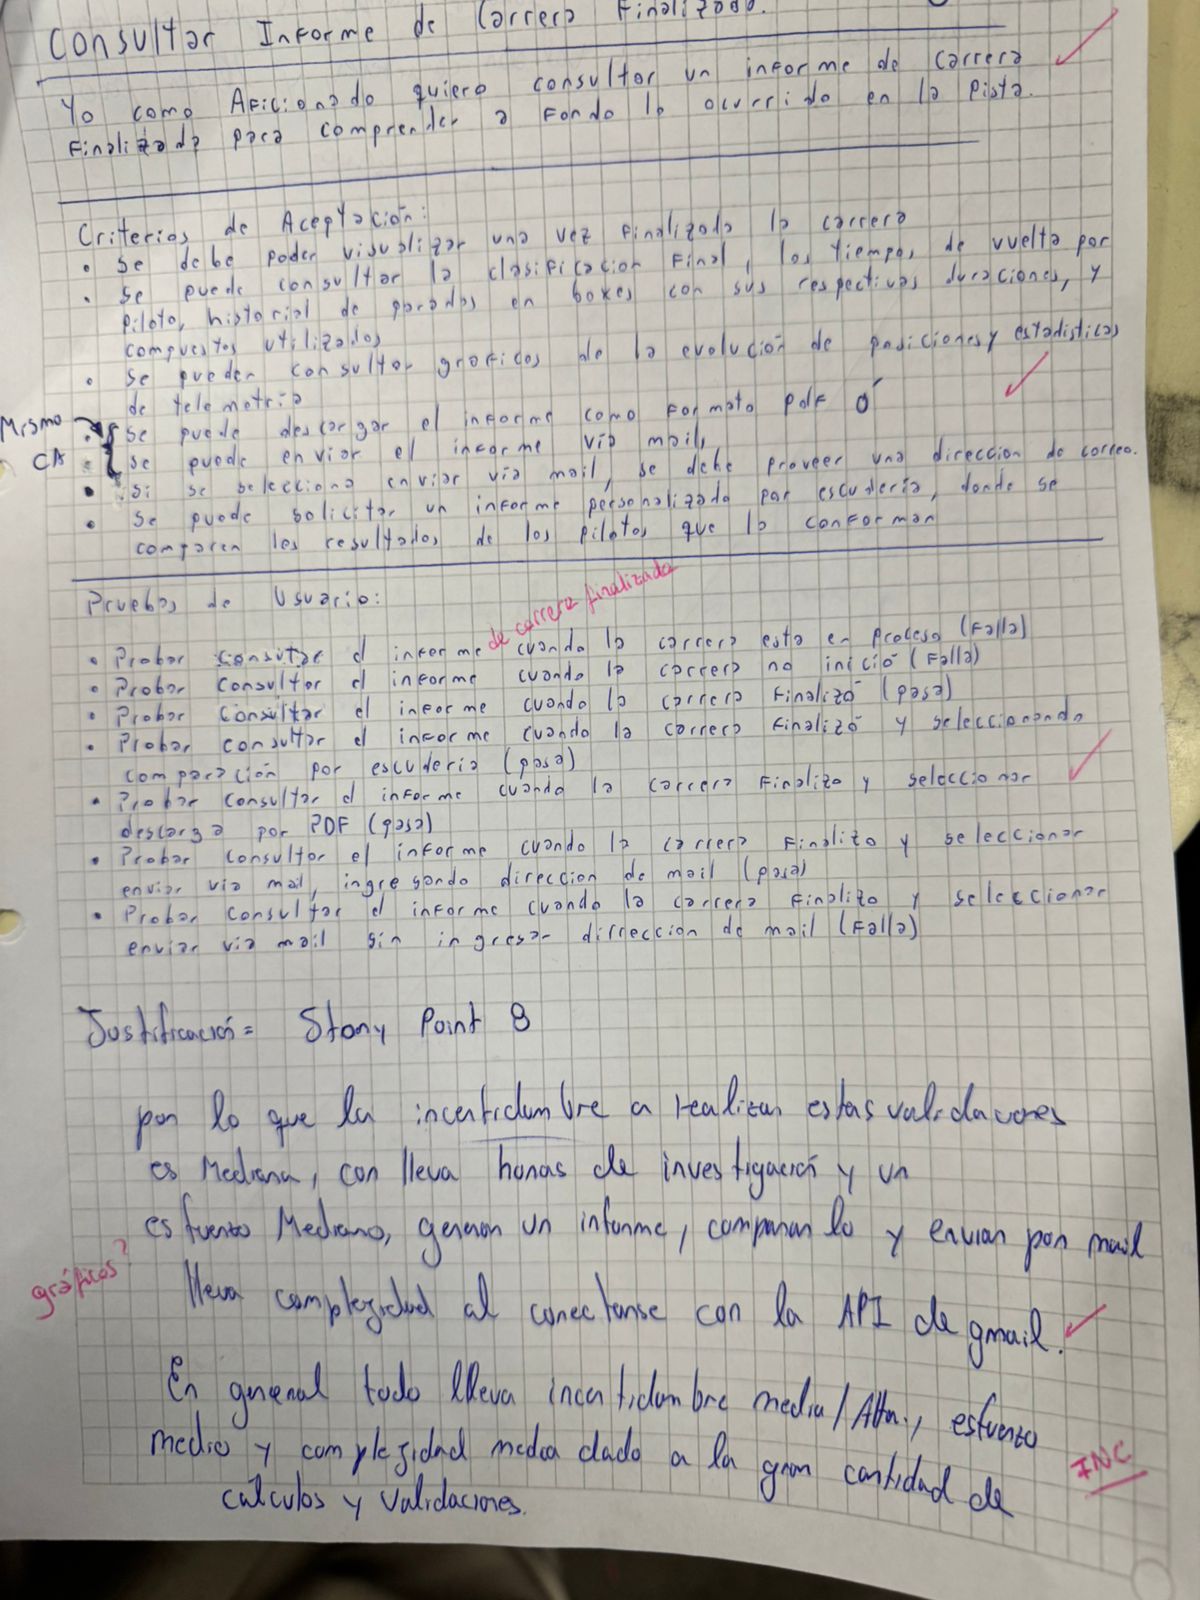 Consultar Informe de Carrera Finalizada.
Yo como Aficionado quiero consultar un informe de carrera
Finalizada para comprender a fondo lo ocurrido en la pista.
Criterios de Aceptación:
• Se debe poder visualizar una vez finalizada la carrera
• Se puede consultar la clasificacion final, los tiempos de vuelta por
piloto, historial de paradas en boxes con sus respectivas duraciones, y
compuestos utilizados
• Se pueden consultar graficos de la evolución de posiciones y estadisticas
de telemetria
Mismo CA
• Se puede descargar el informe como formato pdf ó
se puede enviar el informe via mail,
• Si se selecciona enviar via mail, se debe proveer una direccion de correo.
• Se puede solicitar un informe personalizado por escuderia, donde se
comparen los resultados de los pilotos que la conforman
Pruebas de Usuario:
de carrera finalizada
• Probar consultar el informe cuando la carrera esta en proceso (Falla)
• Probar consultar el informe cuando la carrera no inició (Falla)
• Probar consultar el informe cuando la carrera finalizó (pasa)
• Probar consultar el informe cuando la carrera finalizó y seleccionando
comparación por escuderia (pasa)
• Probar consultar el informe cuando la carrera finalizo y seleccionar
descarga por PDF (pasa)
• Probar consultar el informe cuando la carrera finalizo y seleccionar
enviar via mail, ingresando direccion de mail (pasa)
• Probar consultar el informe cuando la carrera finalizo y seleccionar
enviar via mail sin ingresar dirreccion de mail (Falla)
Justificación = Story Point 8
por lo que la incertidumbre a realizar estas validaciones
es Mediana, con lleva horas de investigación y un
esfuerzo Mediano, generar un informe, compararlo y enviar por mail
gráficos?
lleva complejidad al conectarse con la API de gmail.
En general todo lleva incertidumbre media/Alta., esfuerzo
medio y complejidad media dado a la gran cantidad de
INC
calculos y validaciones.